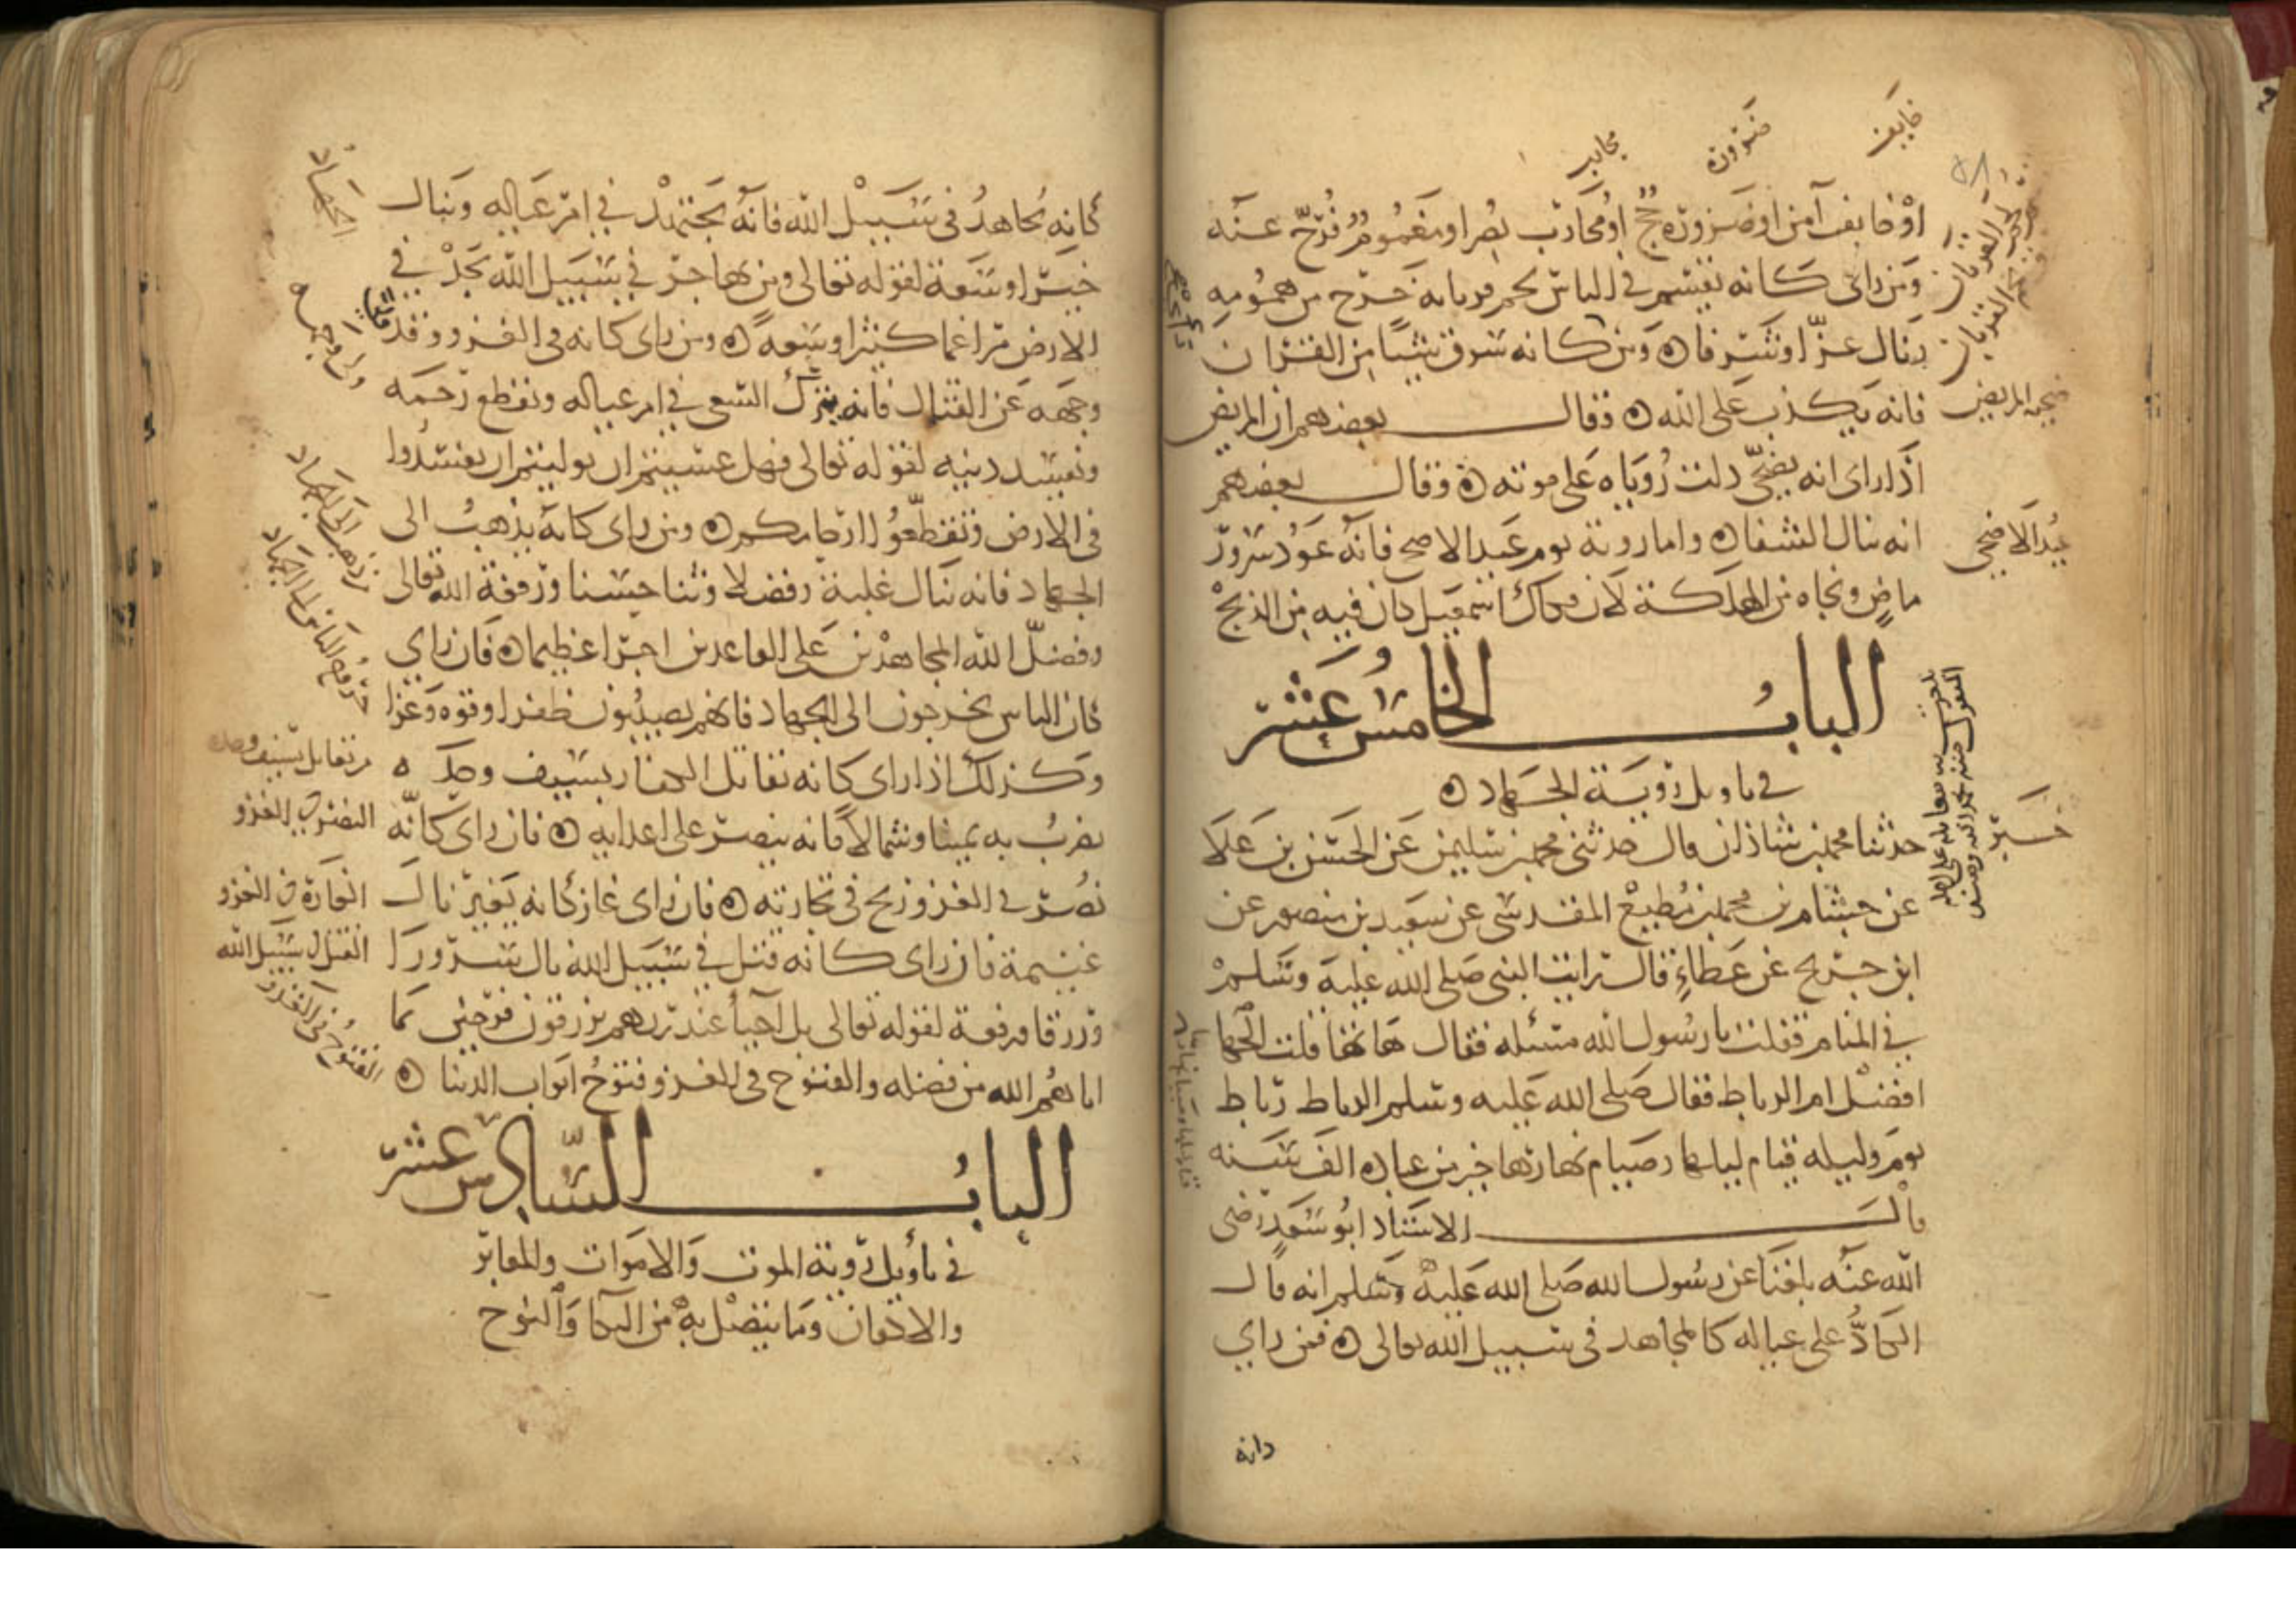 خايف
ضرورة
محارب
او خايف آمن او ضرورة حج او محارب نصر او مغموم فرّج عنه
ومن راى كانه يقسم في الناس لحم قربانه خرج من همومه
ونال عزّا وشرفا ومن كانه سرق شيئا من القربان
فانه يكذب على الله وقال بعضهم ان المريض
اذا راى انه يضحّي دلت رؤياه على موته وقال بعضهم
انه ينال الشفا واما روية يوم عيد الاضحى فانه عود سرور
ماضٍ ونجاه من الهلكة لان فكاك اسمعيل كان فيه من الذبح
الباب الخامس عشر
في تاويل روية الجهاد
حدثنا محمد بن شاذان قال حدثني محمد بن سليمن عن الحسن بن علي
عن هشام بن محمد بن مطيع المقدسي عن سعيد بن منصور عن
ابن جريح عن عطاءٍ قال رايت النبي صلى الله عليه وسلم
في المنام فقلت يا رسول الله مسئله فقال هاتها قلت الجها
افضل ام الرباط فقال صلى الله عليه وسلم الرباط رباط
يوم وليله قيام لياليها وصيام نهارها خير من عباده الف سنه
قال الاستاذ ابو سعد رضي
الله عنه بلغنا عن رسول الله صلى الله عليه وسلم انه قال
الكادُّ على عياله كالمجاهد في سبيل الله تعالى فمن راي
ضحية المريض
عيد الاضحى
خبر
كانه
كانه يجاهد في سبيل الله فانه يجتهد في امر عياله وينال
خيرا وسعة لقوله تعالى ومن يهاجر في سبيل الله يجد في
الارض مراغما كثيرا وسعه ومن راى كانه في الغزو وقد ولّى
وجهه عن القتال فانه يترك السعي في امر عياله ويقطع رحمه
ويفسد دينه لقوله تعالى فهل عسيتم ان توليتم ان تفسدوا
في الارض وتقطّعوا ارحامكم ومن راى كانه يذهب الى
الجهاد فانه ينال غلبة وفضلا وثنا حسنا ورفعة لقوله تعالى
وفضّل الله المجاهدين على القاعدين اجرا عظيما فان راي
كان الناس يخرجون الى الجهاد فانهم يصيبون ظفرا وقوه وعزا
وكذلك اذا راى كانه يقاتل الكفار بسيف وحده
يضرب به يمينا وشمالا فانه ينصر على اعدايه فان راى كانّه
نُصر في الغزو ربح في تجارته فان راى غاز كانه يغير نال
غنيمة فان راى كانه قتل في سبيل الله نال سرورا
ورزقا ورفعة لقوله تعالى بل احيأ عند ربهم يرزقون فرحين بما
اتاهم الله من فضله والفتوح في الغزو فتوح ابواب الدنيا
الباب السّادس عشر
في تأويل روية الموت والاموات والمقابر
والاكفان وما يتصل به من البكا والنوح
الجهاد
الذهاب الى الجهاد
خروج الناس الى الجهاد
من يقاتل بسيف وحده
النصر في الغزو
الغارة في الغزو
القتل في سبيل الله
الفتوح في الغزو